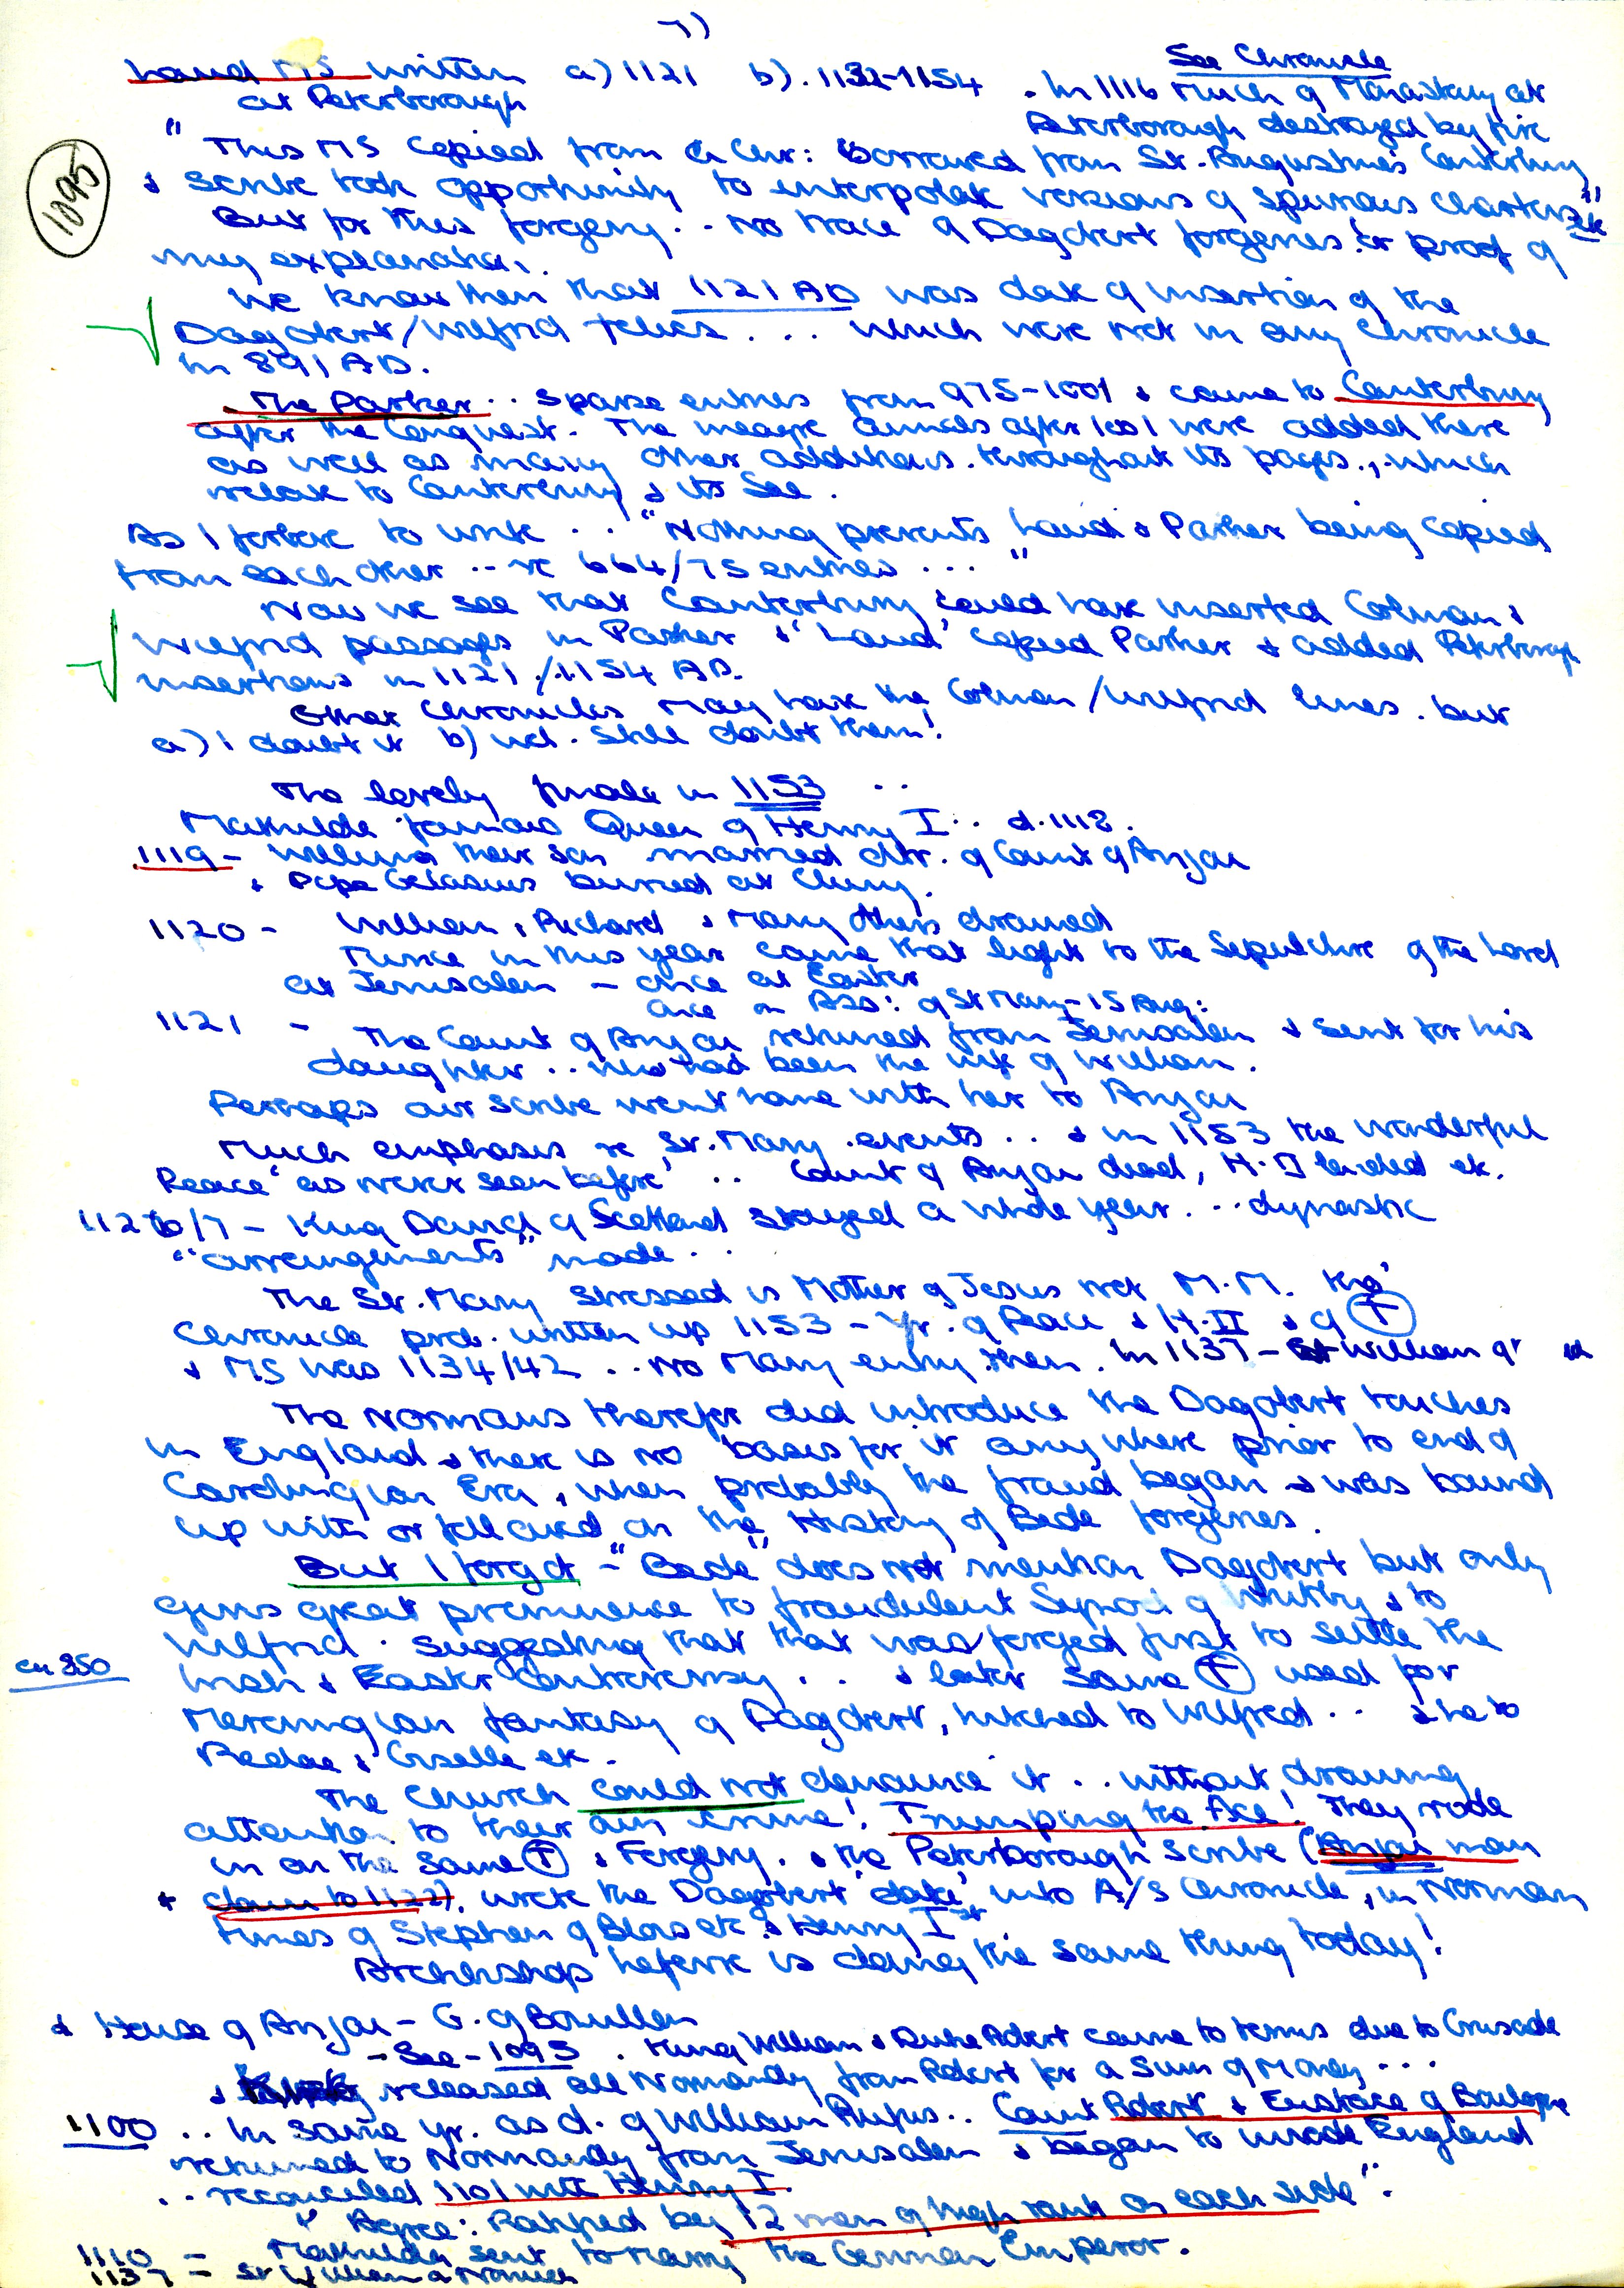 7)
Laud MS written a) 1121 b). 1132-1154 . See Chronicle
at Peterborough
In 1116 much of Monastery at
Peterborough destroyed by fire
1095
"This MS copied from a Chr: borrowed from St. Augustine's Canterbury
& scribe took opportunity to interpolate versions of spurious charters" etc
But for this forgery .. no trace of Dagobert forgeries! or proof of
my explanation.
We know then that 1121 AD was date of insertion of the
Dagobert/Wilfrid felics ... which were not in any Chronicle
in 891 AD.
The Parker .. sparse entries from 975-1001 & came to Canterbury
after the Conquest. The meagre annals after 1001 were added there
as well as many other additions. throughout its pages., which
relate to Canterbury & its See.
As I forbore to write ... "Nothing prevents Laud & Parker being copied
from each other .. re 664/75 entries ..."
Now we see that Canterbury could have inserted Colman &
Wilfrid passages in Parker & 'Laud' copied Parker & added Peterborough
insertions in 1121/1154 AD.
Other Chronicles may have the Colman/Wilfrid lines. but
a) I doubt it b) wd. still doubt them!
The lovely finale in 1153 ..
Mathilde famous Queen of Henry I .. d. 1118.
1119 - William their son married dtr. of Count of Anjou
& Pope Gelasius buried at Cluny.
1120 - William, Richard & Many others drowned
Twice in this year came that light to the Sepulchre of the Lord
at Jerusalem - once at Easter
Once on Ass: of St Mary - 15 Aug:
1121 - The Count of Anjou returned from Jerusalem & sent for his
daughter .. who had been the wife of William.
Perhaps our scribe went home with her to Anjou
Much emphasis re St. Mary events .. & in 1153 the wonderful
Peace "as never seen before" .. Count of Anjou dead, H. II landed etc.
1126/7 - King David of Scotland stayed a whole year ... dynastic
"arrangements" made ..
The St. Mary stressed is Mother of Jesus not M.M. tho'
Chronicle prob. written up 1153 - Yr. of Peace & H. II & of T
& MS was 1134/42 .. No Mary entry then. In 1137 - St William of
The Normans therefor did introduce the Dagobert touches
in England & there is no basis for it anywhere prior to end of
Carolingian Era, when probably the fraud began & was bound
up with or followed on the History of Bede forgeries.
But I forgot - "Bede" does not mention Dagobert but only
gives great prominence to fraudulent Synod of Whitby & to
Wilfrid. Suggesting that that was forged first to settle the
ca 850
Irish & Easter Controversy .. & later same T used for
Merovingian fantasy of Dagobert, hitched to Wilfred .. & he to
Redae & Giselle etc.
The Church could not denounce it .. without drawing
attention to their own crime! Trumping the Ace! They rode
in on the same T & Forgery. & the Peterborough Scribe (Anjou man
+ down to 1122), wrote the Dagobert 'date' into A/S Chronicle, in Norman
times of Stephen of Blois etc & Henry Ist.
Archbishop Lefevre is doing the same thing today!
& House of Anjou - G. of Bouillon
- See - 1095 . King William & Duke Robert came to terms due to Crusade
& released all Normandy from Robert for a sum of Money ...
1100 .. In same yr. as d. of William Rufus .. Count Robert & Eustace of Boulogne
returned to Normandy from Jerusalem & began to invade England
.. reconciled 1101 with Henry I.
" Agree: Ratified by 12 men of high rank on each side".
1110 = Mathilda sent to marry the German Emperor.
1137 = St William of Norwich